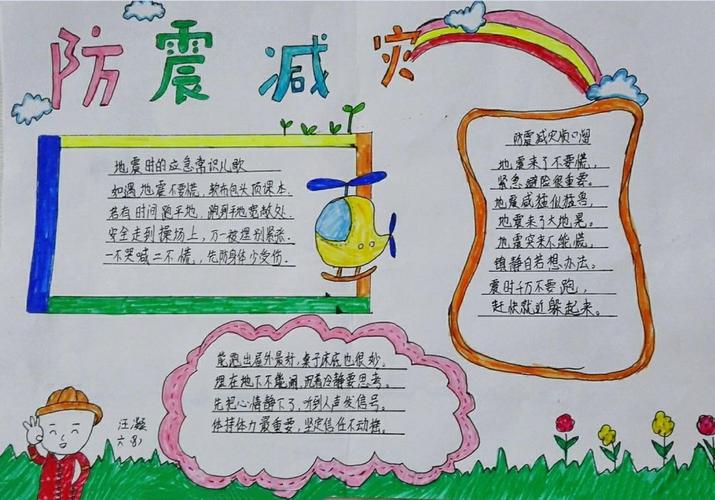 防震减灾
地震时的应急常识儿歌
如遇地震不要慌，软布包头顶课本．
若有时间跑平地，跑到平地宽敞处．
安全走到操场上，万一被埋别紧张．
一不哭喊二不慌，先防身体少受伤．
防震减灾顺口溜
地震来了不要慌，
紧急避险很重要。
地震威猛似猛兽，
地震来了大地晃。
地震突来不能慌，
镇静自若想办法。
震时千万不要跑，
赶快就近躲起来。
能跑出屋外最好，桌子床底也很妙。
埋在地下不能闹，沉着冷静要思考。
先把心情静下了，听到人声发信号。
保持体力最重要，坚定信任不动摇。
汪凝
六8)